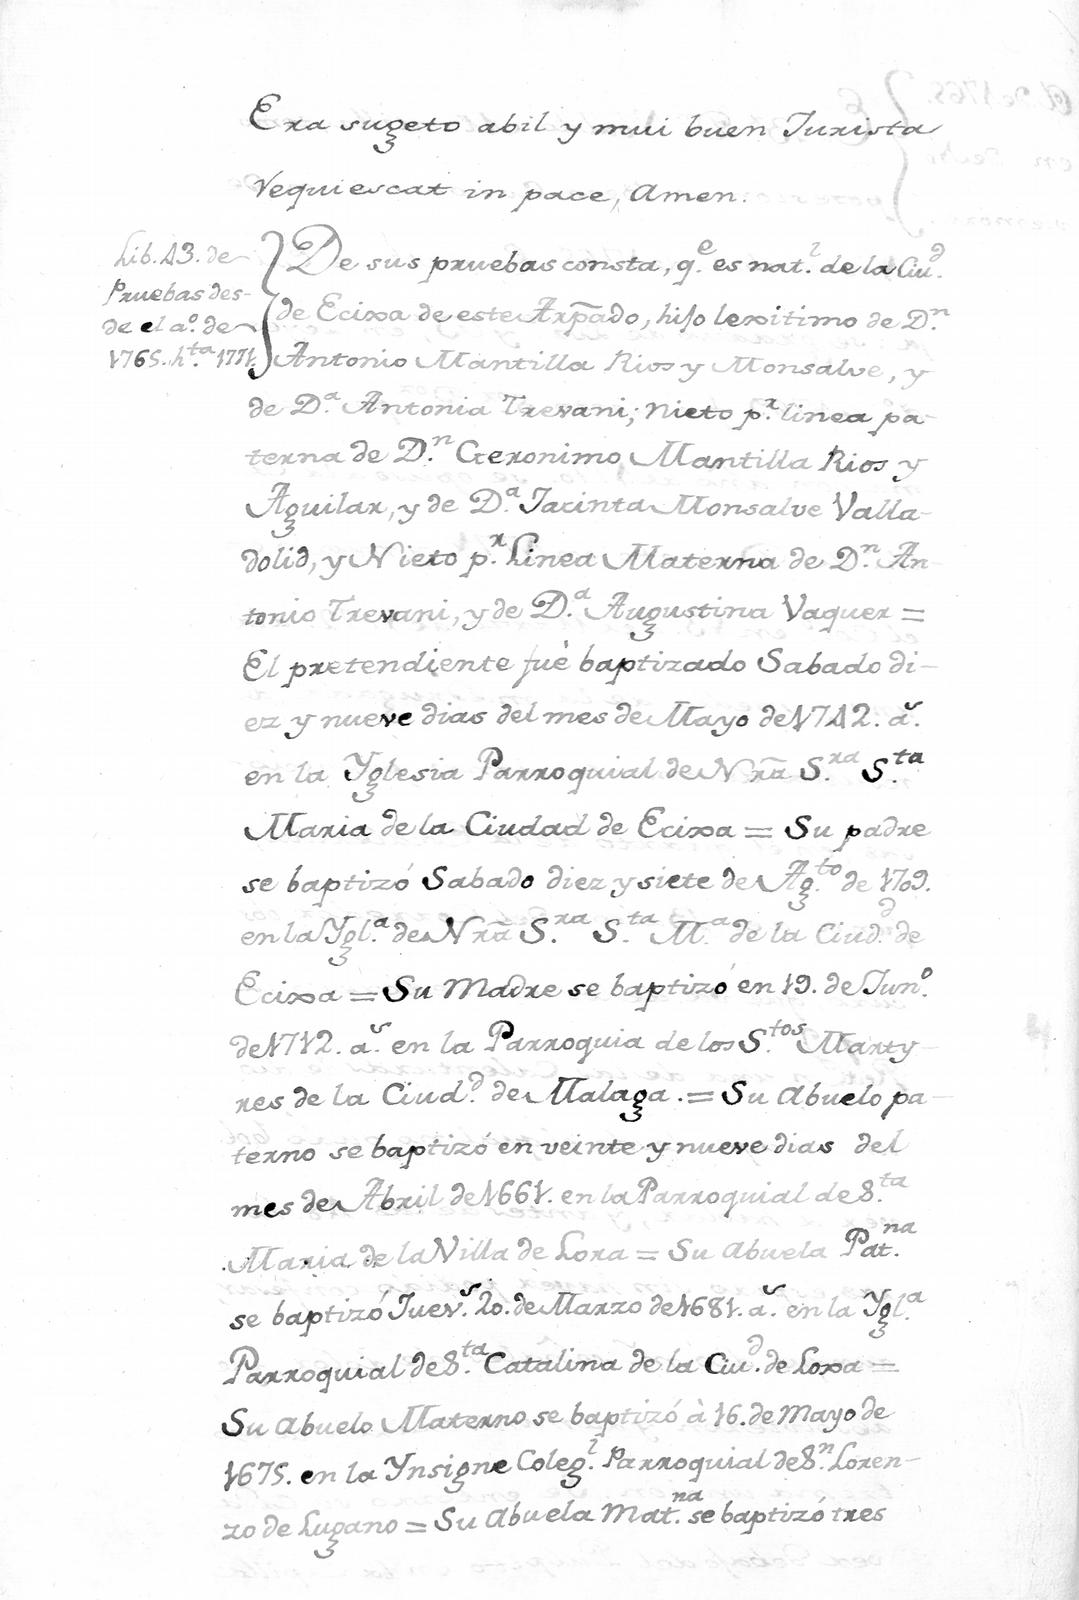 Era sugeto abil y mui buen Jurista
Requiescat in pace, Amen.
Lib. 43. de
Pruebas des-
de el a.º de
1765. h.ta 1771.
De sus pruebas consta, q.e es nat.l de la Ciu.d
de Ecixa de este Arp̃ado, hijo lexitimo de D.n
Antonio Mantilla Rios y Monsalve, y
de D.a Antonia Trevani; Nieto p.r linea pa-
terna de D.n Geronimo Mantilla Rios y
Aguilar, y de D.a Jacinta Monsalve Valla-
dolid, y Nieto p.r Linea Materna de D.n An-
tonio Trevani, y de D.a Augustina Vaquer =
El pretendiente fuè baptizado Sabado di-
ez y nueve dias del mes de Mayo de 1742. a.s
en la Yglesia Parroquial de Nr̃a S.ra S.ta
Maria de la Ciudad de Ecixa = Su padre
se baptizó Sabado diez y siete de Ag.to de 1709.
en la Ygl.a de Nr̃a S.ra S.ta M.a de la Ciud.d de
Ecixa = Su Madre se baptizó en 19. de Jun.o
de 1712. a.s en la Parroquia de los S.tos Marty-
res de la Ciud.d de Malaga. = Su Abuelo pa-
terno se baptizó en veinte y nueve dias del
mes de Abril de 1661. en la Parroquial de S.ta
Maria de la Villa de Lora = Su Abuela Pat.na
se baptizó Juev.s 20. de Marzo de 1681. a.s en la Ygl.a
Parroquial de S.ta Catalina de la Ciu.d de Loxa =
Su Abuelo Materno se baptizó à 16. de Mayo de
1675. en la Ynsigne Coleg.l Parroquial de S.n Loren-
zo de Lugano = Su Abuela Mat.na se baptizó tres